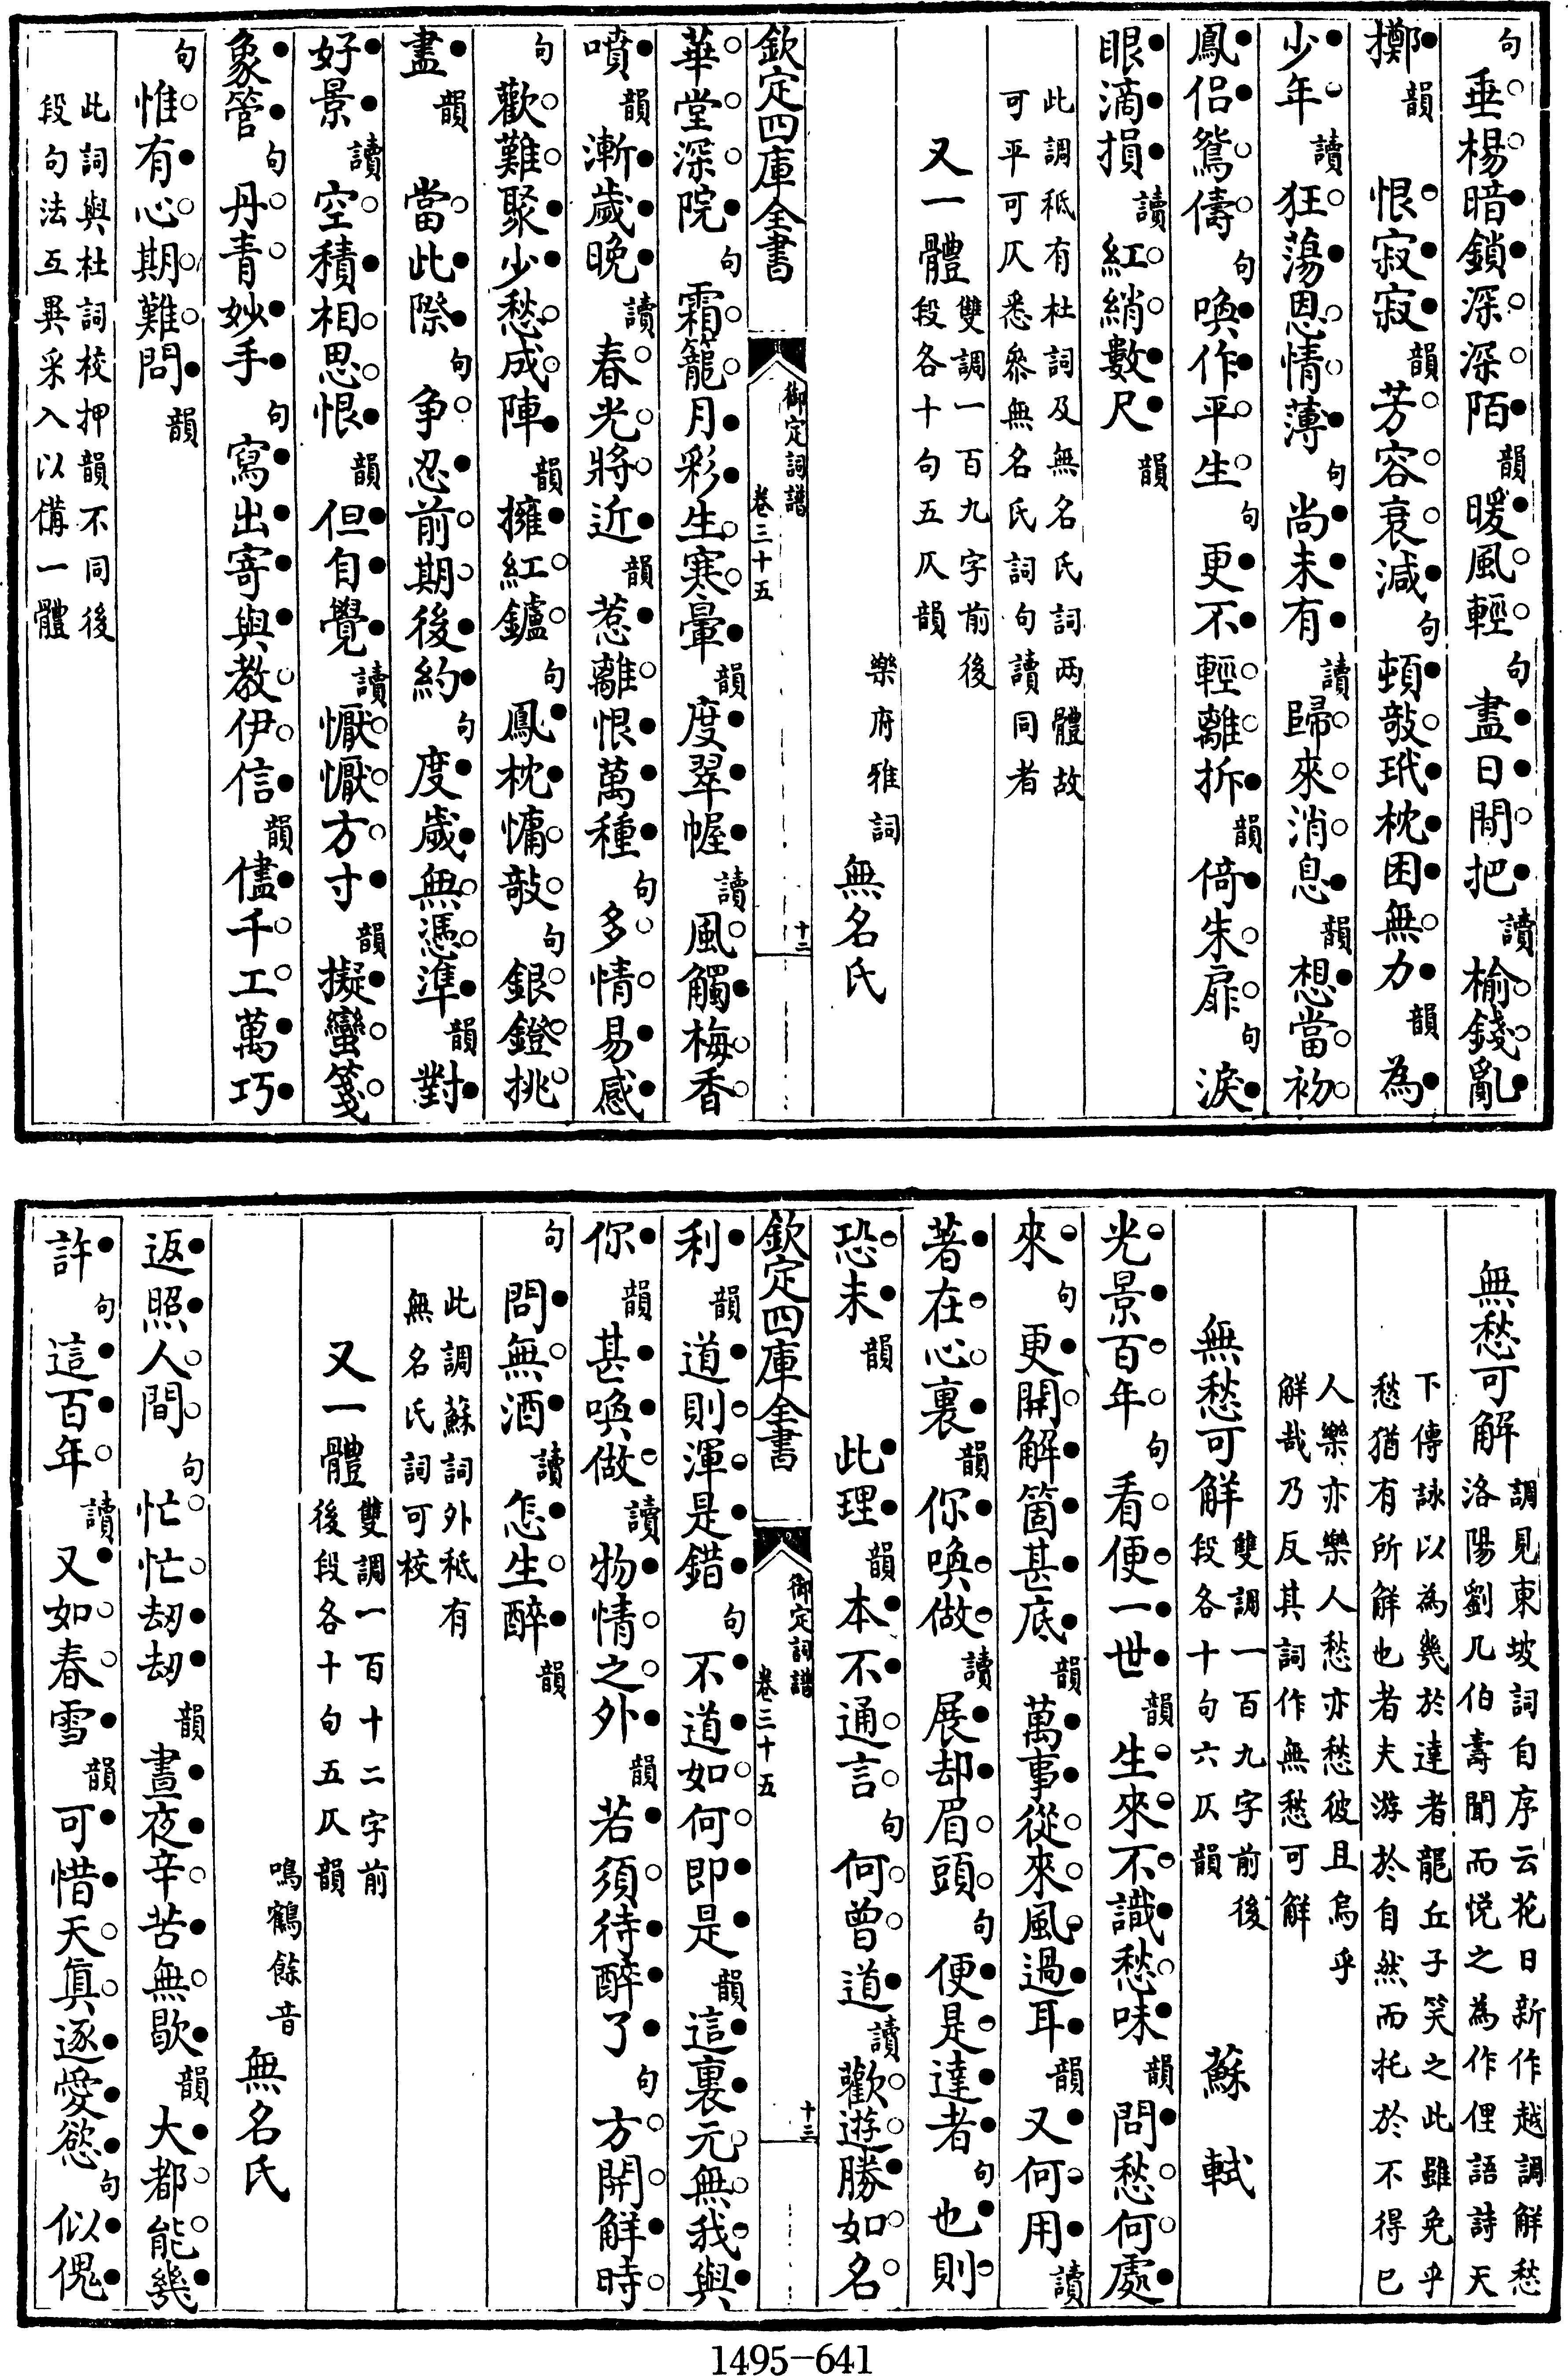 句垂楊暗鎖深深陌韻暖風輕句盡日閒把讀榆錢亂
擲韻恨寂寂韻芳容衰減句頓敧玳枕困無力韻為
少年讀狂蕩恩情薄句尚未有讀歸來消息韻想當初
鳳侶鴛儔句喚作平生句更不輕離拆韻倚朱扉句淚
眼滴損讀紅綃數尺韻
此調秪有杜詞及無名氏詞兩體故
可平可仄悉叅無名氏詞句讀同者
又一體雙調一百九字前後
段各十句五仄韻
樂府雅詞無名氏
欽定四庫全書
御定詞譜
卷三十五
十二
華堂深院句霜籠月彩生寒暈韻度翠幄讀風觸梅香
噴韻漸歲晚讀春光將近韻惹離恨萬種句多情易感
句歡難聚少愁成陣韻擁紅鑪句鳳枕慵敧句銀鐙挑
盡韻當此際句争忍前期後約句度歲無憑準韻對
好景讀空積相思恨韻但自覺讀懨懨方寸韻擬蠻箋
象管句丹青妙手句寫出寄與教伊信韻儘千工萬巧
句惟有心期難問韻
此詞與杜詞校押韻不同後
段句法互異采入以備一體
無愁可解調見東坡詞自序云花日新作越調解愁
洛陽劉几伯壽聞而悅之為作俚語詩天
下傳詠以為幾於達者龍丘子笑之此雖免乎
愁猶有所解也者夫游於自然而托於不得已
人樂亦樂人愁亦愁彼且烏乎
解哉乃反其詞作無愁可解
無愁可解雙調一百九字前後
段各十句六仄韻
蘇軾
光景百年句看便一世韻生來不識愁味韻問愁何處
來句更開解箇甚底韻萬事從來風過耳韻又何用讀
著在心裏韻你喚做讀展却眉頭句便是達者句也則
恐未韻此理韻本不通言句何曾道讀歡遊勝如名
欽定四庫全書
御定詞譜
卷三十五
十三
利韻道則渾是錯句不道如何即是韻這裏元無我與
你韻甚喚做讀物情之外韻若須待醉了句方開解時
句問無酒讀怎生醉韻
此調蘇詞外秪有
無名氏詞可校
又一體雙調一百十二字前
後段各十句五仄韻
鳴鶴餘音無名氏
返照人間句忙忙刼刼韻晝夜辛苦無歇韻大都能幾
許句這百年讀又如春雪韻可惜天真逐愛慾句似傀
1495-641